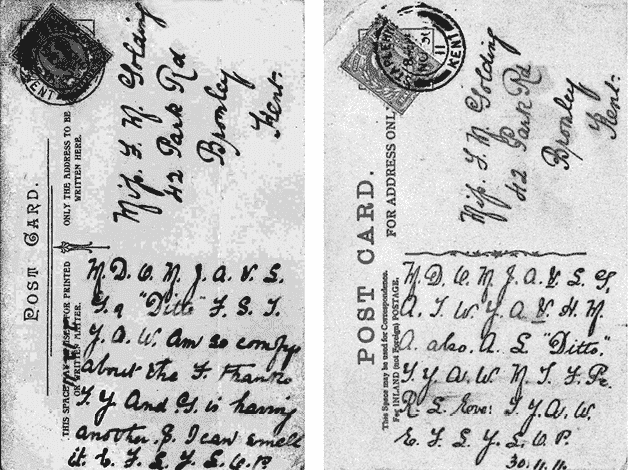 POST CARD.
THIS SPACE MAY BE USED FOR PRINTED
OR WRITTEN MATTER.
ONLY THE ADDRESS TO BE
WRITTEN HERE.
KENT
Miss. F. M. Golding
42 Park Rd
Bromley
Kent.
M. D. O. M. J. A. V. S.
"Ditto" F. S. I.
Y. A. W. Am so comfy
about the F. thanks
I. Y. And G. is having
another. I can smell
it. E. F. S. Y. S. O. P.
POST CARD.
FOR ADDRESS ONLY
This Space may be used for Correspondence.
For INLAND (not Foreign) POSTAGE.
KENT
11
Miss. F. M. Golding
42 Park Rd
Bromley
Kent.
M. D. O. M. J. A. V. S. G.
A. I. W. Y. A. V. H. M.
A. also. A. S. "Ditto."
I. Y. A. W. M. I. F. Pe.
R. S. love! I. Y. A. W.
E. F. S. Y. S. O. P.
30.11.11.